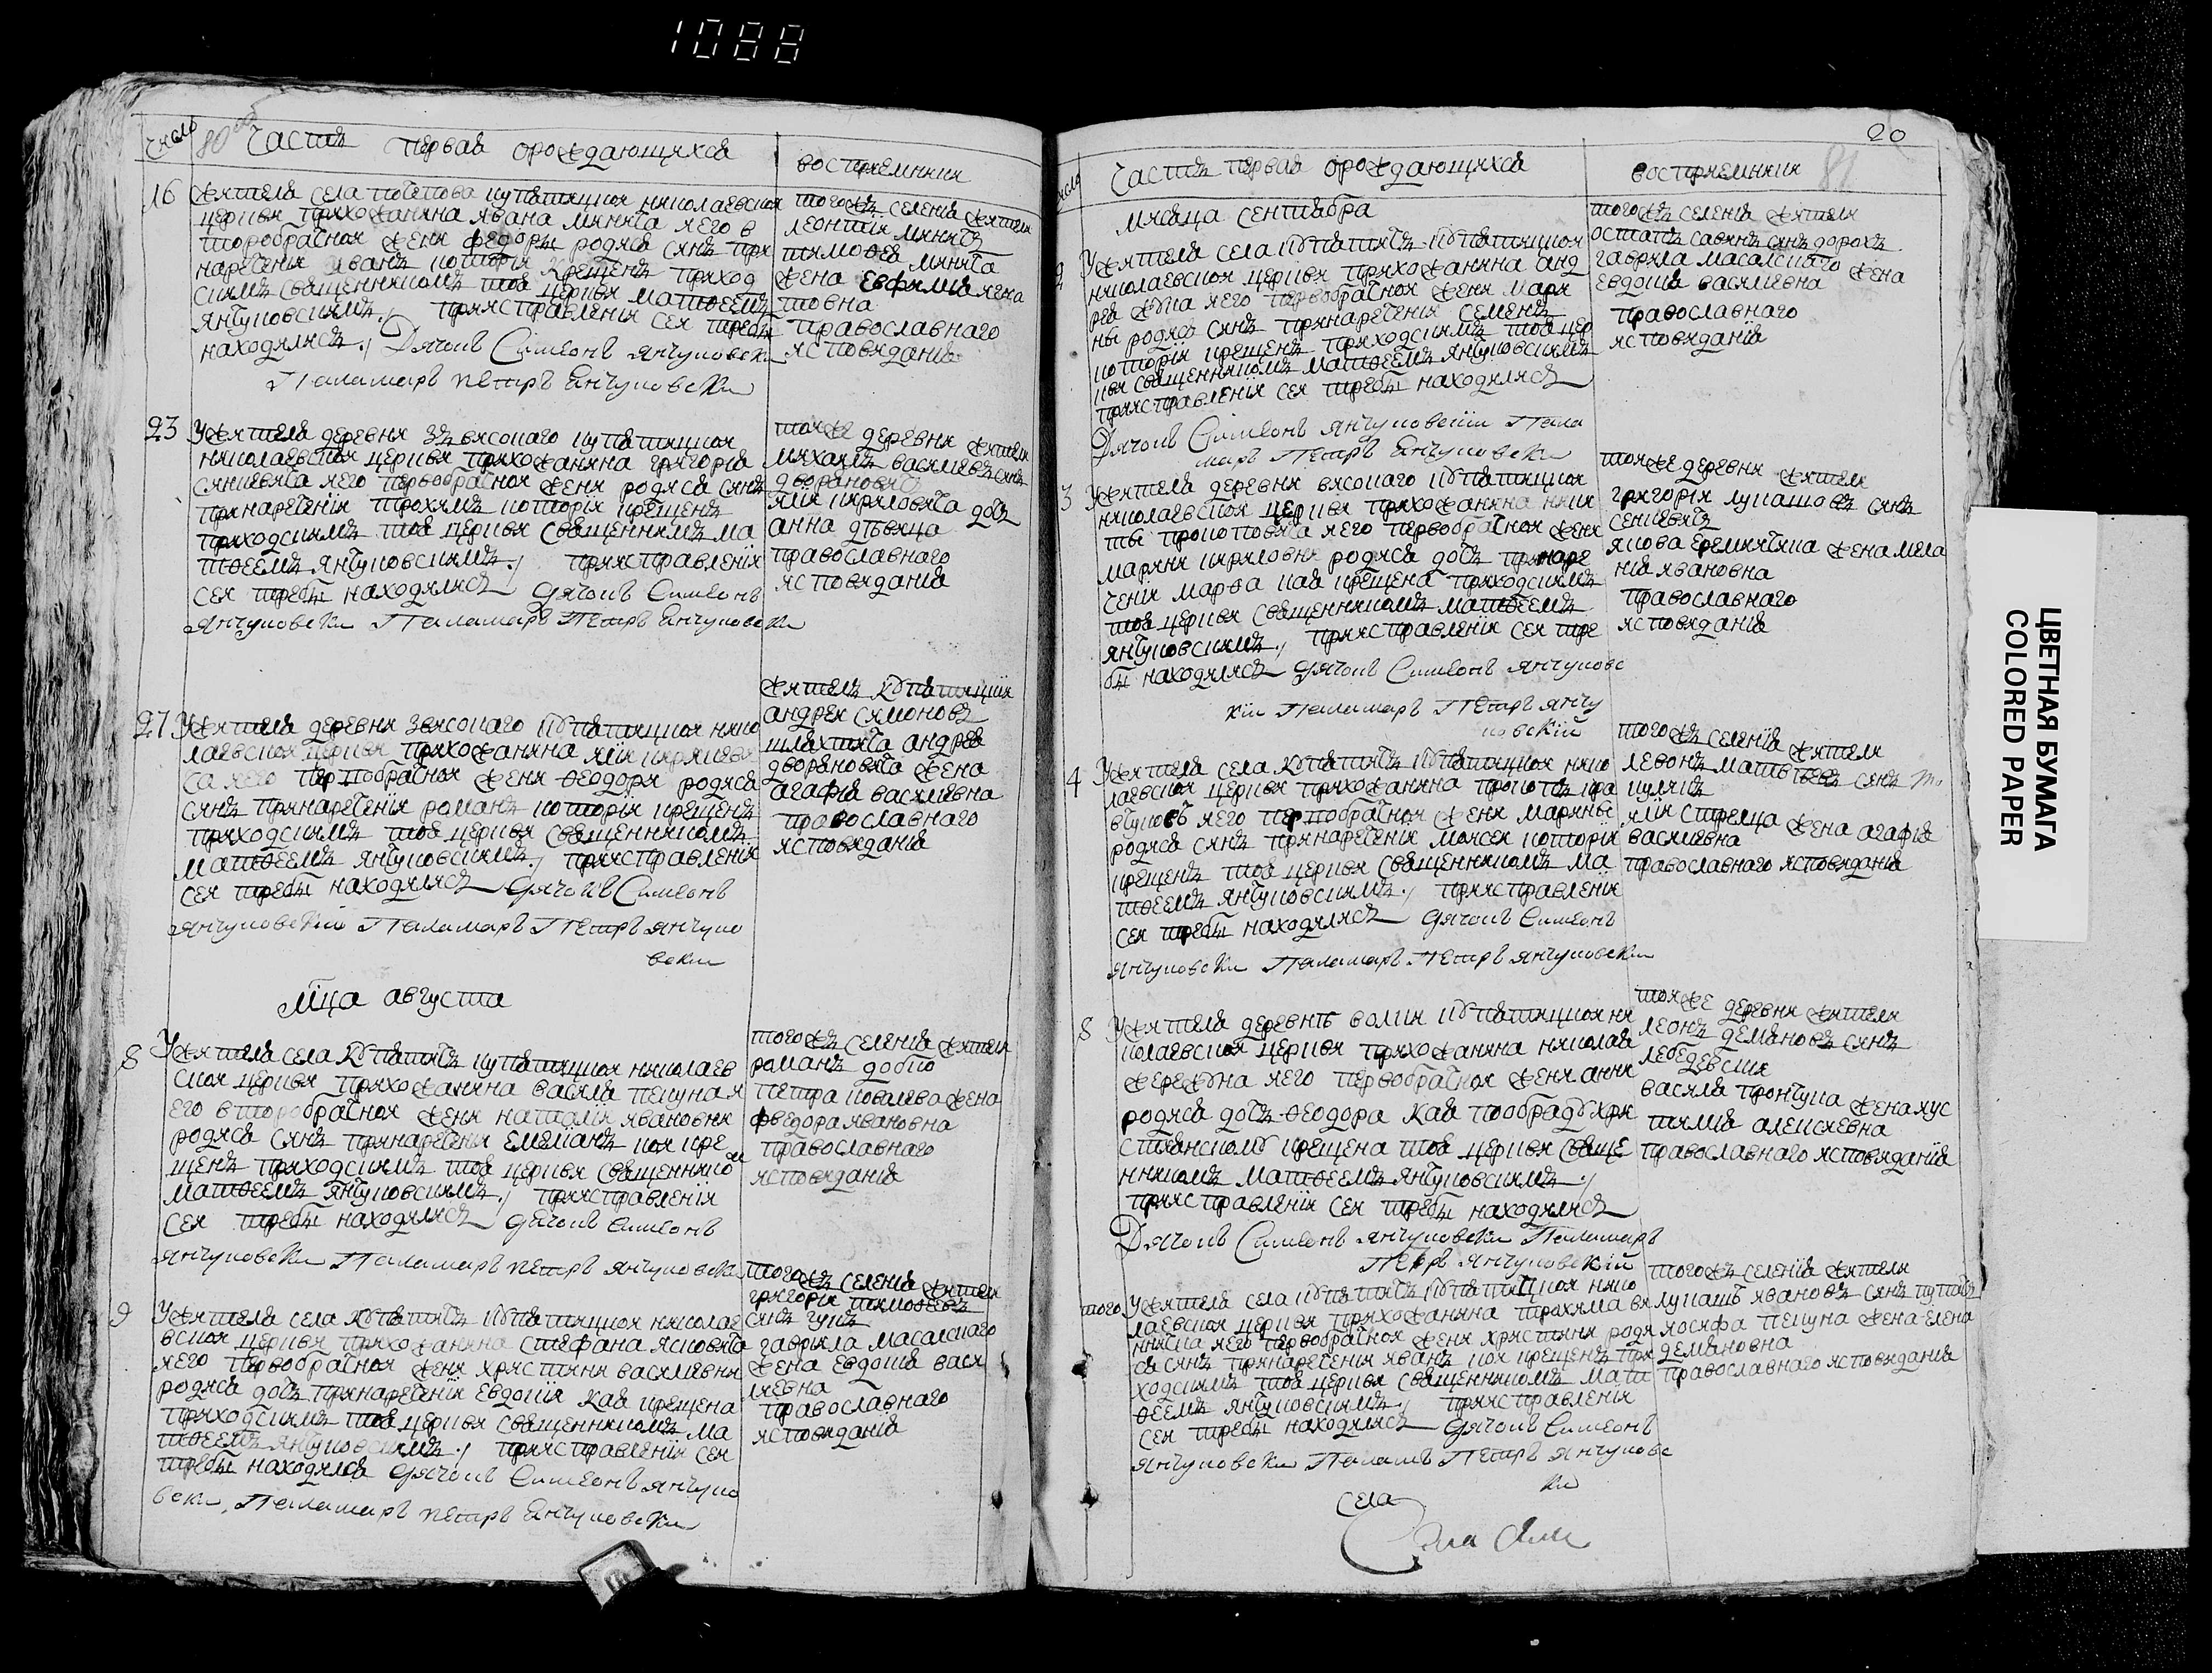 1088
число
80
Часть первая орождающяхся
восприемники
16
жятеля села потепова купятицкоя няколаевскоя
церквя пряхожаняна явана мянича яего в
торобрачноя женя федоры родяся сянъ пря
наречения иванъ которія крещенъ приход
скимъ священникомъ тоя церквя матвеемъ
янчуковскимъ пряисправлении сея требы
находялися Дячокъ Симеонъ янчуковски
Паламаръ петръ Янчуковски
тогожъ селенія жятели
леонтія мянячъ
тямофея мянича
жена евфямія ягна
товна
православного
исповяданія
23
Ужятеля деревня
няколаевскоя церквя пряхожаняна грягорія
яего первобрачноя женя родяся сянъ
прянаречения трохимъ которія крещенъ
пряходскимъ тоя церквя священникомъ ма
твеемъ янчуковскимъ пряисправленія
сея требы находялися дячокъ Симеонъ
янчуковски Паламаръ Петръ Янчуковски
тояже деревня жятели
мяхаилъ васялевъ сянъ
дворановячъ
ялія киряловяча дочъ
анна дѣвяца
православного
исповяданія
27
Ужятеля деревня звясокаго Купятицкоя няко
лаевскоя церквя пряхожаняна
яего первобрачноя женя феодоря родяся
сянъ прянаречения романъ которія крещенъ
пряходскимъ тоя церквя священникомъ
матвеемъ янчуковскимъ пряисправленія
сея требы находялися Дячокъ Симеонъ
янчуковскій Паламаръ Петръ янчуко
вски
жятель Купятицкія
андрея сямоновъ
шляхтяча андрея
дворановяча жена
агафія васялевна
православного
исповяданія
мца августа
8
Ужятеля села Купятячъ купятицкоя няколаев
ской церквя пряхожаняна васяля пекуна я
его второбрачноя женя наталія явановня
родяся сянъ прянаречения емеліанъ коя кре
щенъ пряходскимъ тоя церквя священнико
матвеемъ янчуковскимъ пряисправленія
сея требы находялися дячокъ Симеонъ
янчуковски Паламаръ петръ янчуковски
тогожъ селенія жятели
романъ добко
петра ковалева жена
фведора явановна
православного
исповяданія
9
Ужятеля села Купятячъ Купятицкоя няколае
вскоя церквя пряхожаняна стефана
яего первобрачноя женя хрястяня васялевня
родяся дочъ прянаречения евдокія кая крещена
пряходскимъ тоя церквя священникомъ ма
твеемъ янчуковскимъ пряисправленія сея
требы находялися дячокъ Симеонъ янчуко
вски, Паламаръ петръ Янчуковски
тогожъ селенія жятели
грягорія тямофеевъ
сянъ
гавряла масалскаго
жена евдоша вася
левна
православного
исповяданія
20
число
Часть первая орождающяхся
восприемники
81
мясяца сентября
2
Ужятеля села Купятячъ Купятицкоя
няколаевскоя церквя пряхожаняна анд
рея яего первобрачноя женя маря
ны родяся сянъ прянаречения семенъ
которія крещенъ пряходскимъ тоя цер
квя священникомъ матвеемъ янчуковскимъ
пряисправленія сея требы находялися
Дячокъ Симеонъ янчуковскіи Пала
маръ Петръ Янчуковски
тогожъ селенія жятели
остапъ савянъ сянъ дорохъ
гавряла масалскаго жена
евдоша васялевна
православного
исповяданія
3
Ужятеля деревня вясокаго Купятицкоя
няколаевскоя церквя пряхожаняна няки
ты прокоповяча яего первобрачноя женя
маряня киряловня родяся дочъ прянаре
ченія марфа кая крещена пряходскимъ
тоя церквя священникомъ матвеемъ
янчуковскимъ пряисправленія сея тре
бы находялися дячокъ Симеонъ янчуковс
кіи Паламаръ Петръ янчу
ковскій
тояже деревня жятели
грягорія лукашовъ сянъ
сенкевячъ
якова еремячяка жена мела
нія явановна
православного
исповяданія
4
Ужятеля села Купятячъ Купятицкоя няко
лаевскоя церквя пряхожаняна прокопъ кра
вчуковъ яего первобрачноя женя маряны
родяся сянъ прянаречения моясея которія
крещенъ тоя церквя священникомъ ма
твеемъ янчуковскимъ пряисправленія
сея требы находялися дячокъ Симеонъ
янчуковски Паламаръ Петръ янчуковски
тогожъ селенія жятели
левонъ матвѣевъ сянъ
кулячъ
ялія стрелца жена агафія
васялевна
православного исповяданія
8
Ужятеля деревнѣ волки Купятицкоя ня
колаевскоя церквя пряхожаняна няколая
яего первобрачноя женя ання
родяся дочъ феодора кая пообряду хря
стянскому крещена тоя церквя свяще
нникомъ матвеемъ янчуковскимъ
пряисправленія сея требы находялися
Дячокъ Симеонъ янчуковски Паламаръ
Петръ янчуковскій
тояже деревня жятели
леонъ демановъ сянъ
лебедевскя
васяля прончука жена яус
тямія алексяевна
православного исповяданія
того
Ужятеля села Купятячъ Купятицкоя няко
лаевскоя церквя пряхожаняна трахяма вя
яего первобрачноя женя хрястяня родя
ся сянъ прянаречения яванъ коя крещенъ пря
ходскимъ тоя церквя священникомъ мат
феемъ янчуковскимъ пряисправленія
сея требы находялися дячокъ Симеонъ
янчуковски Паламъ Петръ Янчуковс
ки
тогожъ селенія жятели
лукашъ явановъ сянъ
яосяфа пекуна жена елена
демановна
православного исповяданія
села
ЦВЕТНАЯ БУМАГА
COLORED PAPER